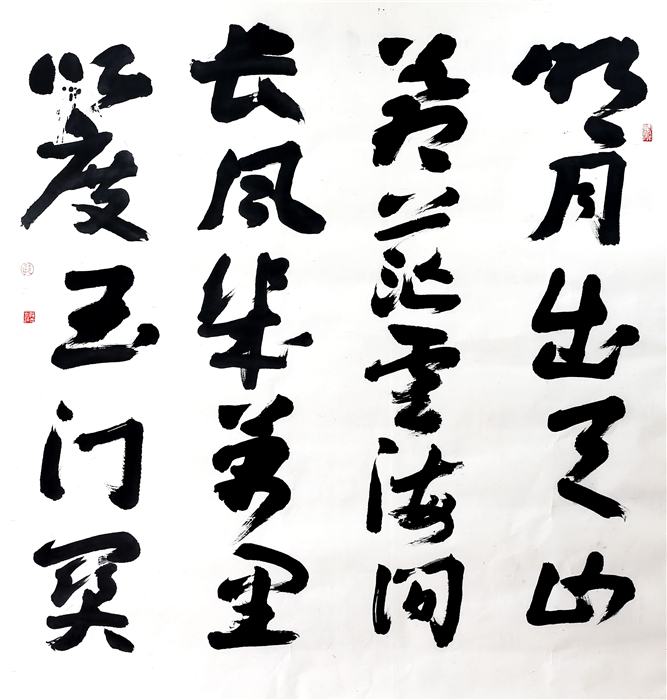 明月出天山
苍茫雲海间
长风幾萬里
吹度玉门関